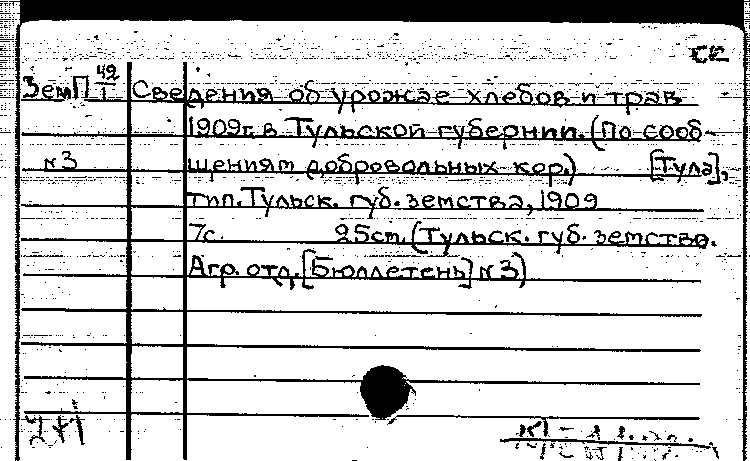 СЕ
ЗемП 42/1 Сведения об урожае хлебов и трав
1909г. в Тульской губернии. (По сооб-
№3 щениям добровольных кор.) [Тула],
тип. Тульск. губ. земства, 1909
7с. 25см. (Тульск. губ. земство.
Агр. отд. [Бюллетень] №3)